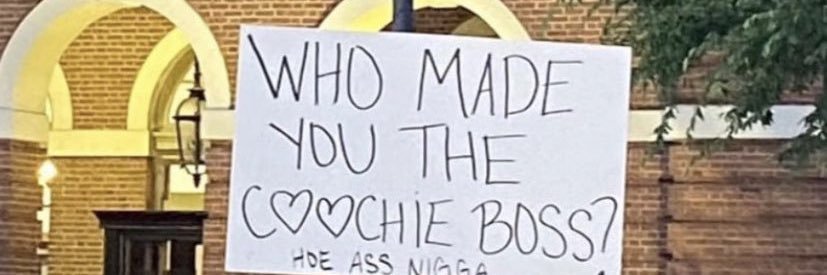 WHO MADE
YOU THE
C♡♡CHiE BOSS?
HOE ASS NIGGA